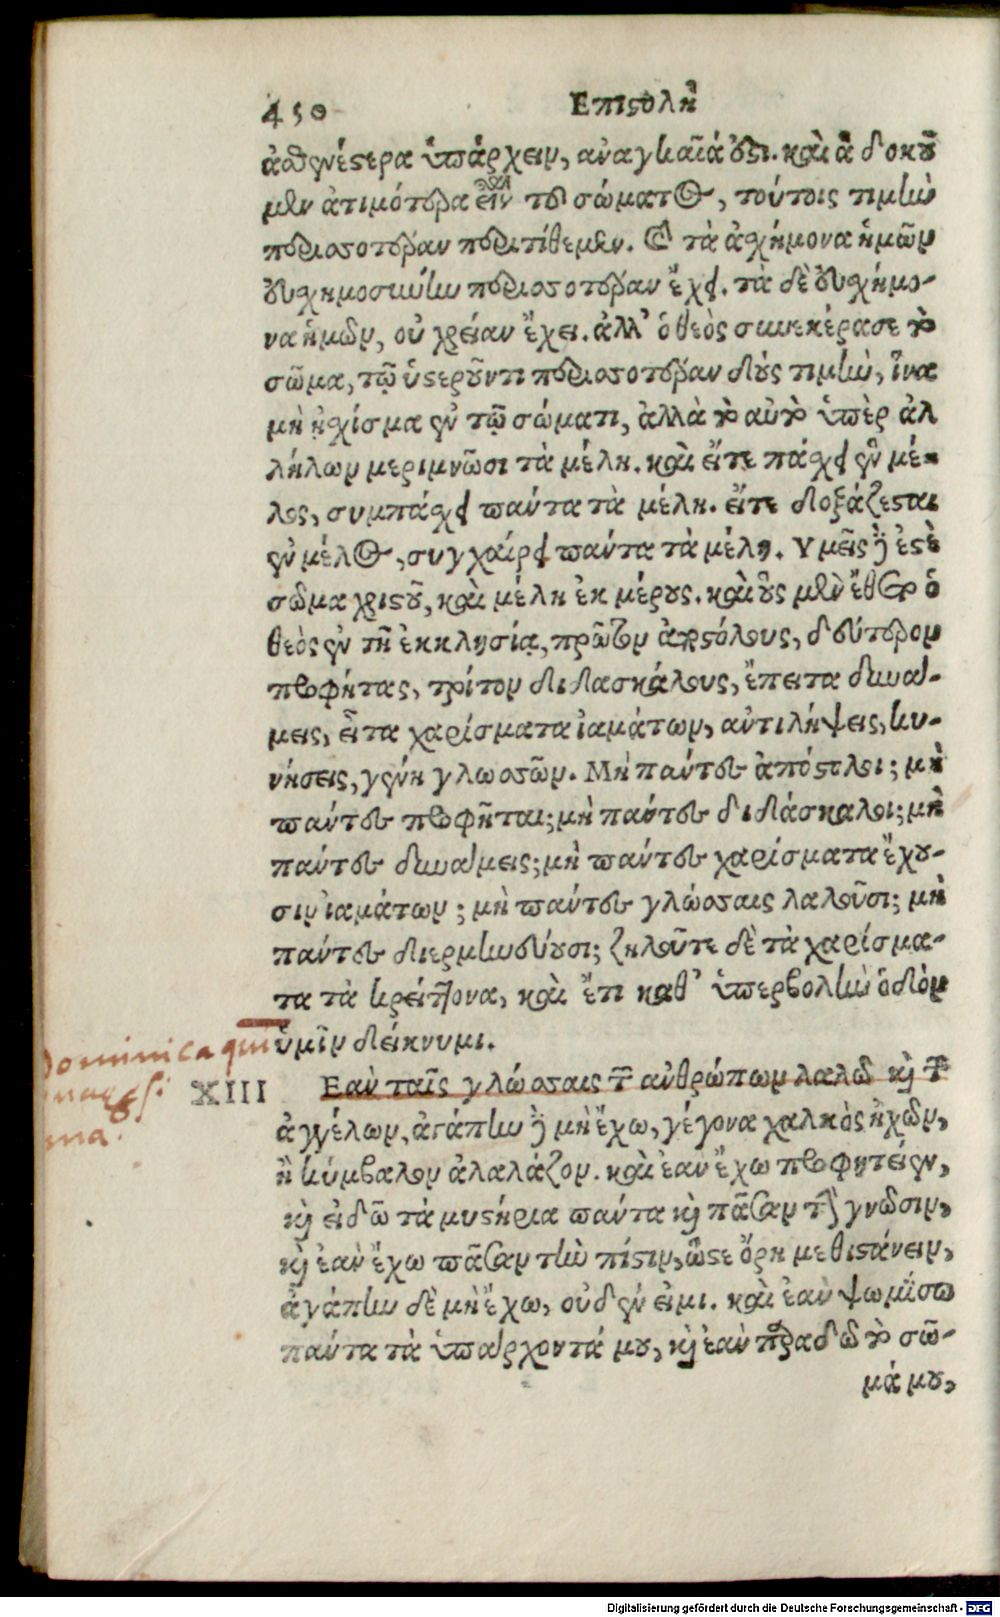 450 Επιστολὴ
ἀσθενέστερα ὑπάρχειν, ἀναγκαῖά ἐστι. καὶ ἃ δοκοῦ
μεν ἀτιμότερα εἶναι τοῦ σώματος, τούτοις τιμὴν
περισσοτέραν περιτίθεμεν. καὶ τὰ ἀσχήμονα ἡμῶν
εὐσχημοσύνην περισσοτέραν ἔχει. τὰ δὲ εὐσχήμο-
να ἡμῶν, οὐ χρείαν ἔχει. ἀλλ’ ὁ θεὸς συνεκέρασε τὸ
σῶμα, τῷ ὑστεροῦντι περισσοτέραν δοὺς τιμὴν, ἵνα
μὴ ᾖ σχίσμα ἐν τῷ σώματι, ἀλλὰ τὸ αὐτὸ ὑπὲρ ἀλ
λήλων μεριμνῶσι τὰ μέλη. καὶ εἴτε πάσχει ἓν μέ-
λος, συμπάσχει πάντα τὰ μέλη. εἴτε δοξάζεται
ἓν μέλος, συγχαίρει πάντα τὰ μέλη. Υμεῖς δέ ἐστὲ
σῶμα χριστοῦ, καὶ μέλη ἐκ μέρους. καὶ οὓς μὲν ἔθετο ὁ
θεὸς ἐν τῇ ἐκκλησίᾳ, πρῶτον ἀποστόλους, δεύτερον
προφήτας, τρίτον διδασκάλους, ἔπειτα δυνά-
μεις, εἶτα χαρίσματα ἰαμάτων, ἀντιλήψεις, κυ-
νήσεις, γένη γλωσσῶν. Μὴ πάντες ἀπόστολοι; μὴ
πάντες προφῆται; μὴ πάντες διδάσκαλοι; μὴ
πάντες δυνάμεις; μὴ πάντες χαρίσματα ἔχου-
σιν ἰαμάτων; μὴ πάντες γλώσσαις λαλοῦσι; μὴ
πάντες διερμηνεύουσι; ζηλοῦτε δὲ τὰ χαρίσμα-
τα τὰ κρείττονα, καὶ ἔτι καθ’ ὑπερβολὴν ὁδὸν
ὑμῖν δείκνυμι.
Dominica qui
XIII Εαν ταῖς γλώσσαις τῶν ἀνθρώπων λαλῶ καὶ τῶν
ἀγγέλων, ἀγάπην δὲ μὴ ἔχω, γέγονα χαλκὸς ἠχῶν,
ἢ κύμβαλον ἀλαλάζον. καὶ ἐὰν ἔχω προφητείαν,
καὶ εἰδῶ τὰ μυστήρια πάντα καὶ πᾶσαν τὴν γνῶσιν,
καὶ ἐὰν ἔχω πᾶσαν τὴν πίστιν, ὥστε ὄρη μεθιστάνειν,
ἀγάπην δὲ μὴ ἔχω, οὐδέν εἰμι. καὶ ἐὰν ψωμίσω
πάντα τὰ ὑπάρχοντά μου, καὶ ἐὰν παραδῶ τὸ σῶ-
μά μου,
Digitalisierung gefördert durch die Deutsche Forschungsgemeinschaft - DFG